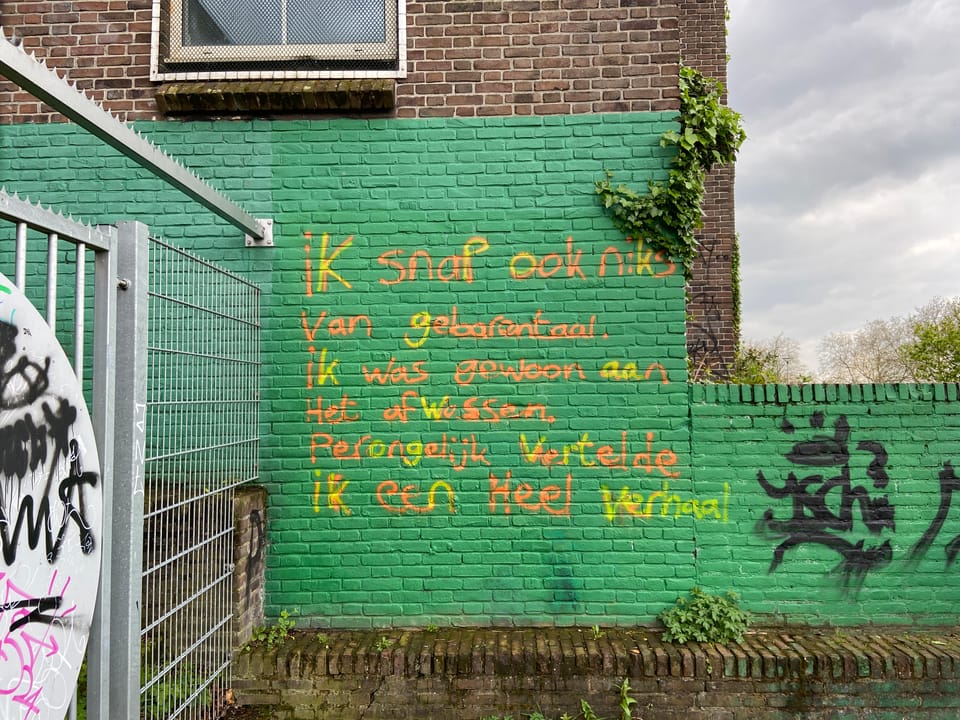 iK snap ook niks
Van gebarentaal.
ik was gewoon aan
Het afWassen.
Perongelijk Vertelde
ik een Heel verhaal